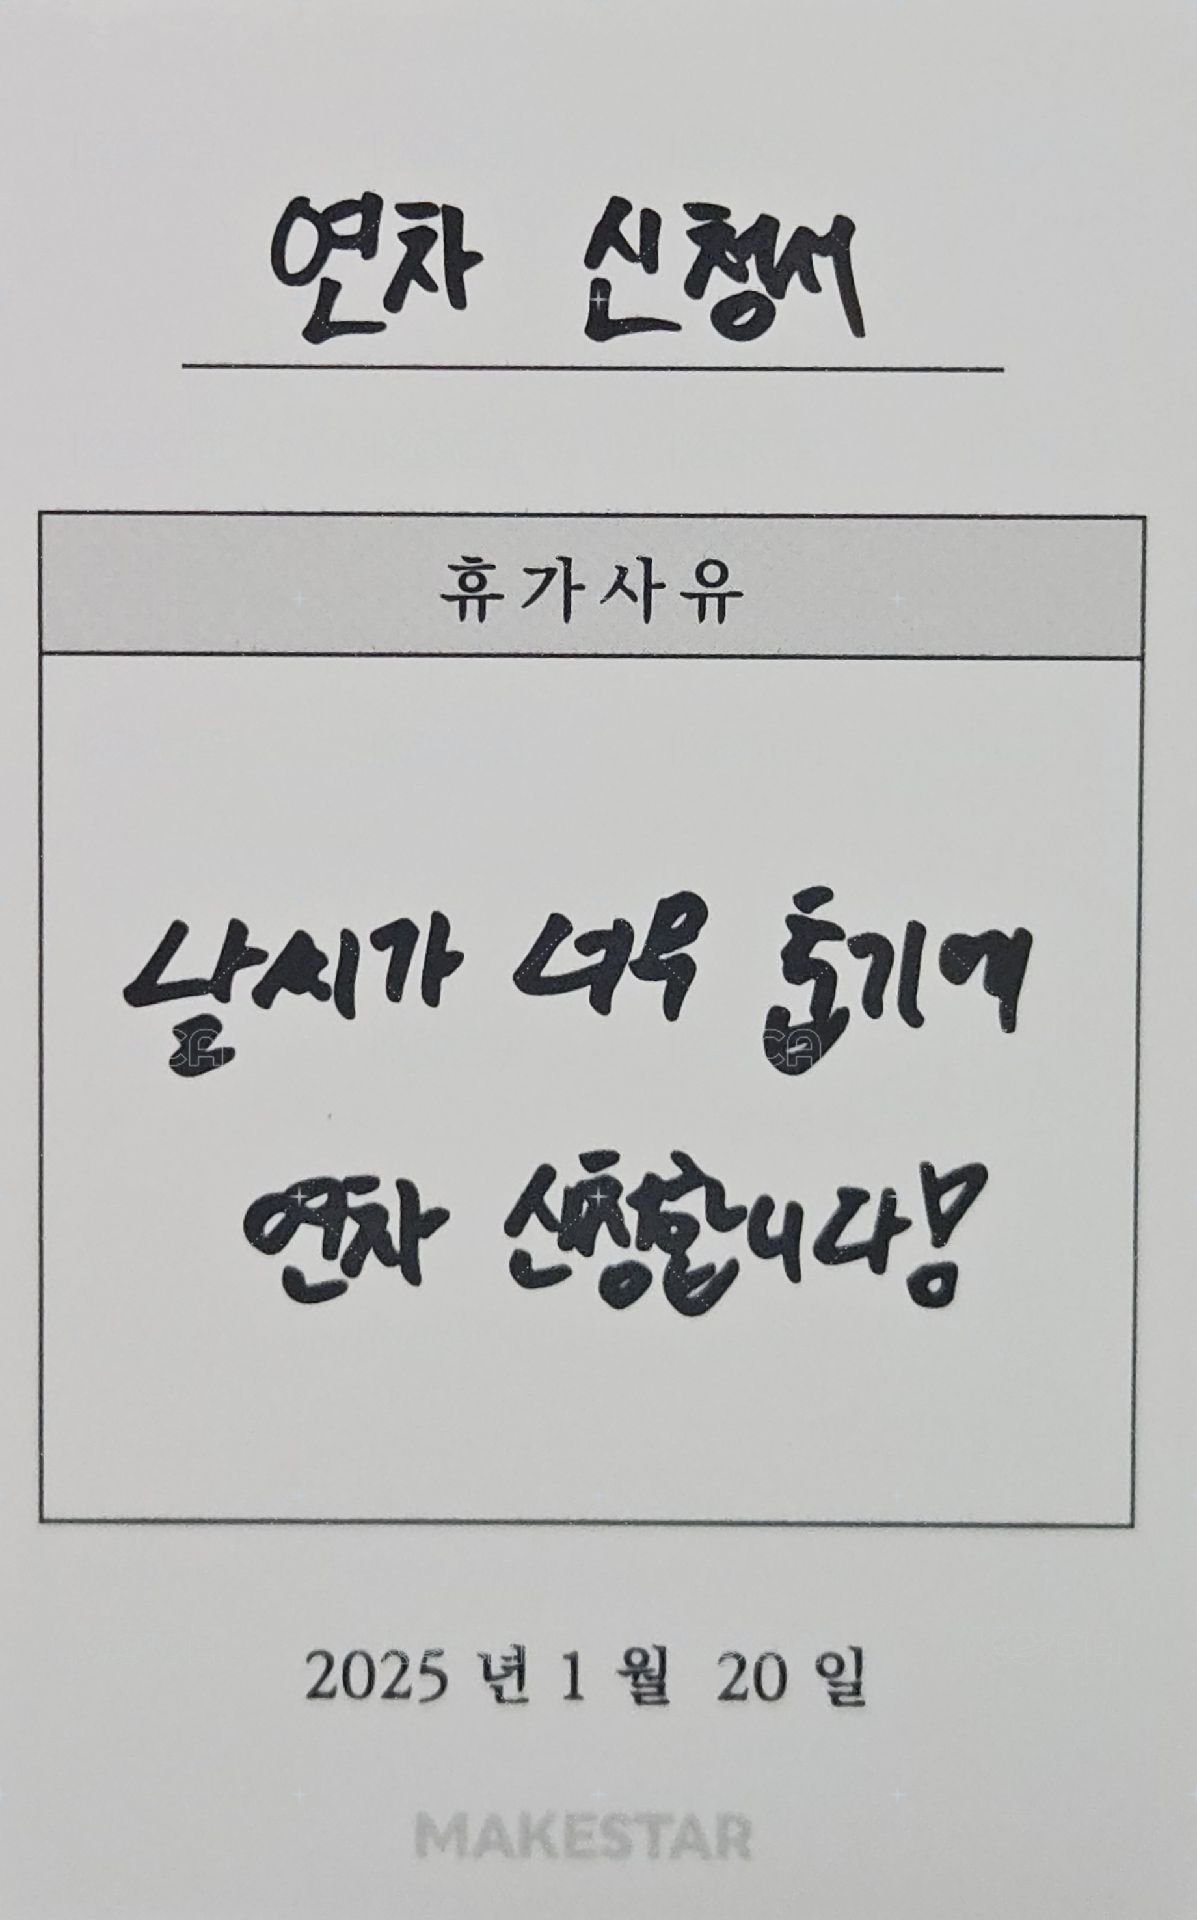 연차 신청서
휴가사유
날씨가 너무 흐기에
연차 신청합니다!
2025 년 1 월 20 일
MAKESTAR